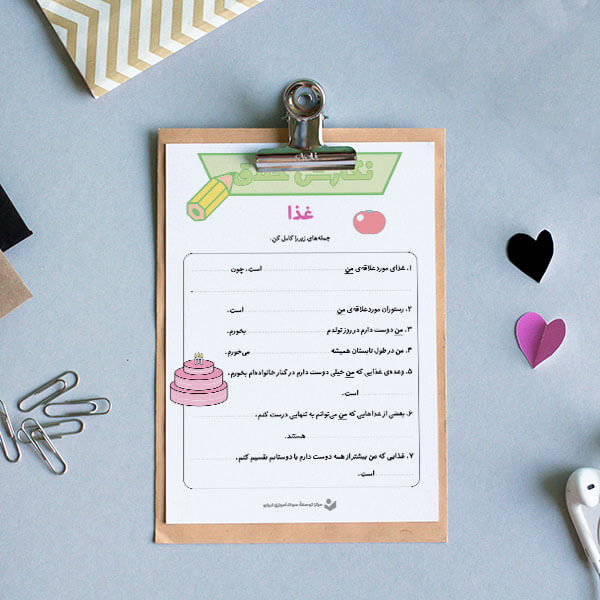 نگارش خلاق
غذا
جمله‌های زیر را کامل کن.
۱. غذای مورد علاقه‌ی من است. چون
۲. رستوران مورد علاقه‌ی من است.
۳. من دوست دارم در روز تولدم بخورم.
۴. من در طول تابستان همیشه می‌خورم.
۵. وعده‌ی غذایی که من خیلی دوست دارم در کنار خانواده‌ام بخورم،
است.
۶. بعضی از غذاهایی که من می‌توانم به تنهایی درست کنم،
هستند.
۷. غذایی که من بیشتر از همه دوست دارم با دوستانم تقسیم کنم،
است.
مرکز توسعهٔ سوادآموزی